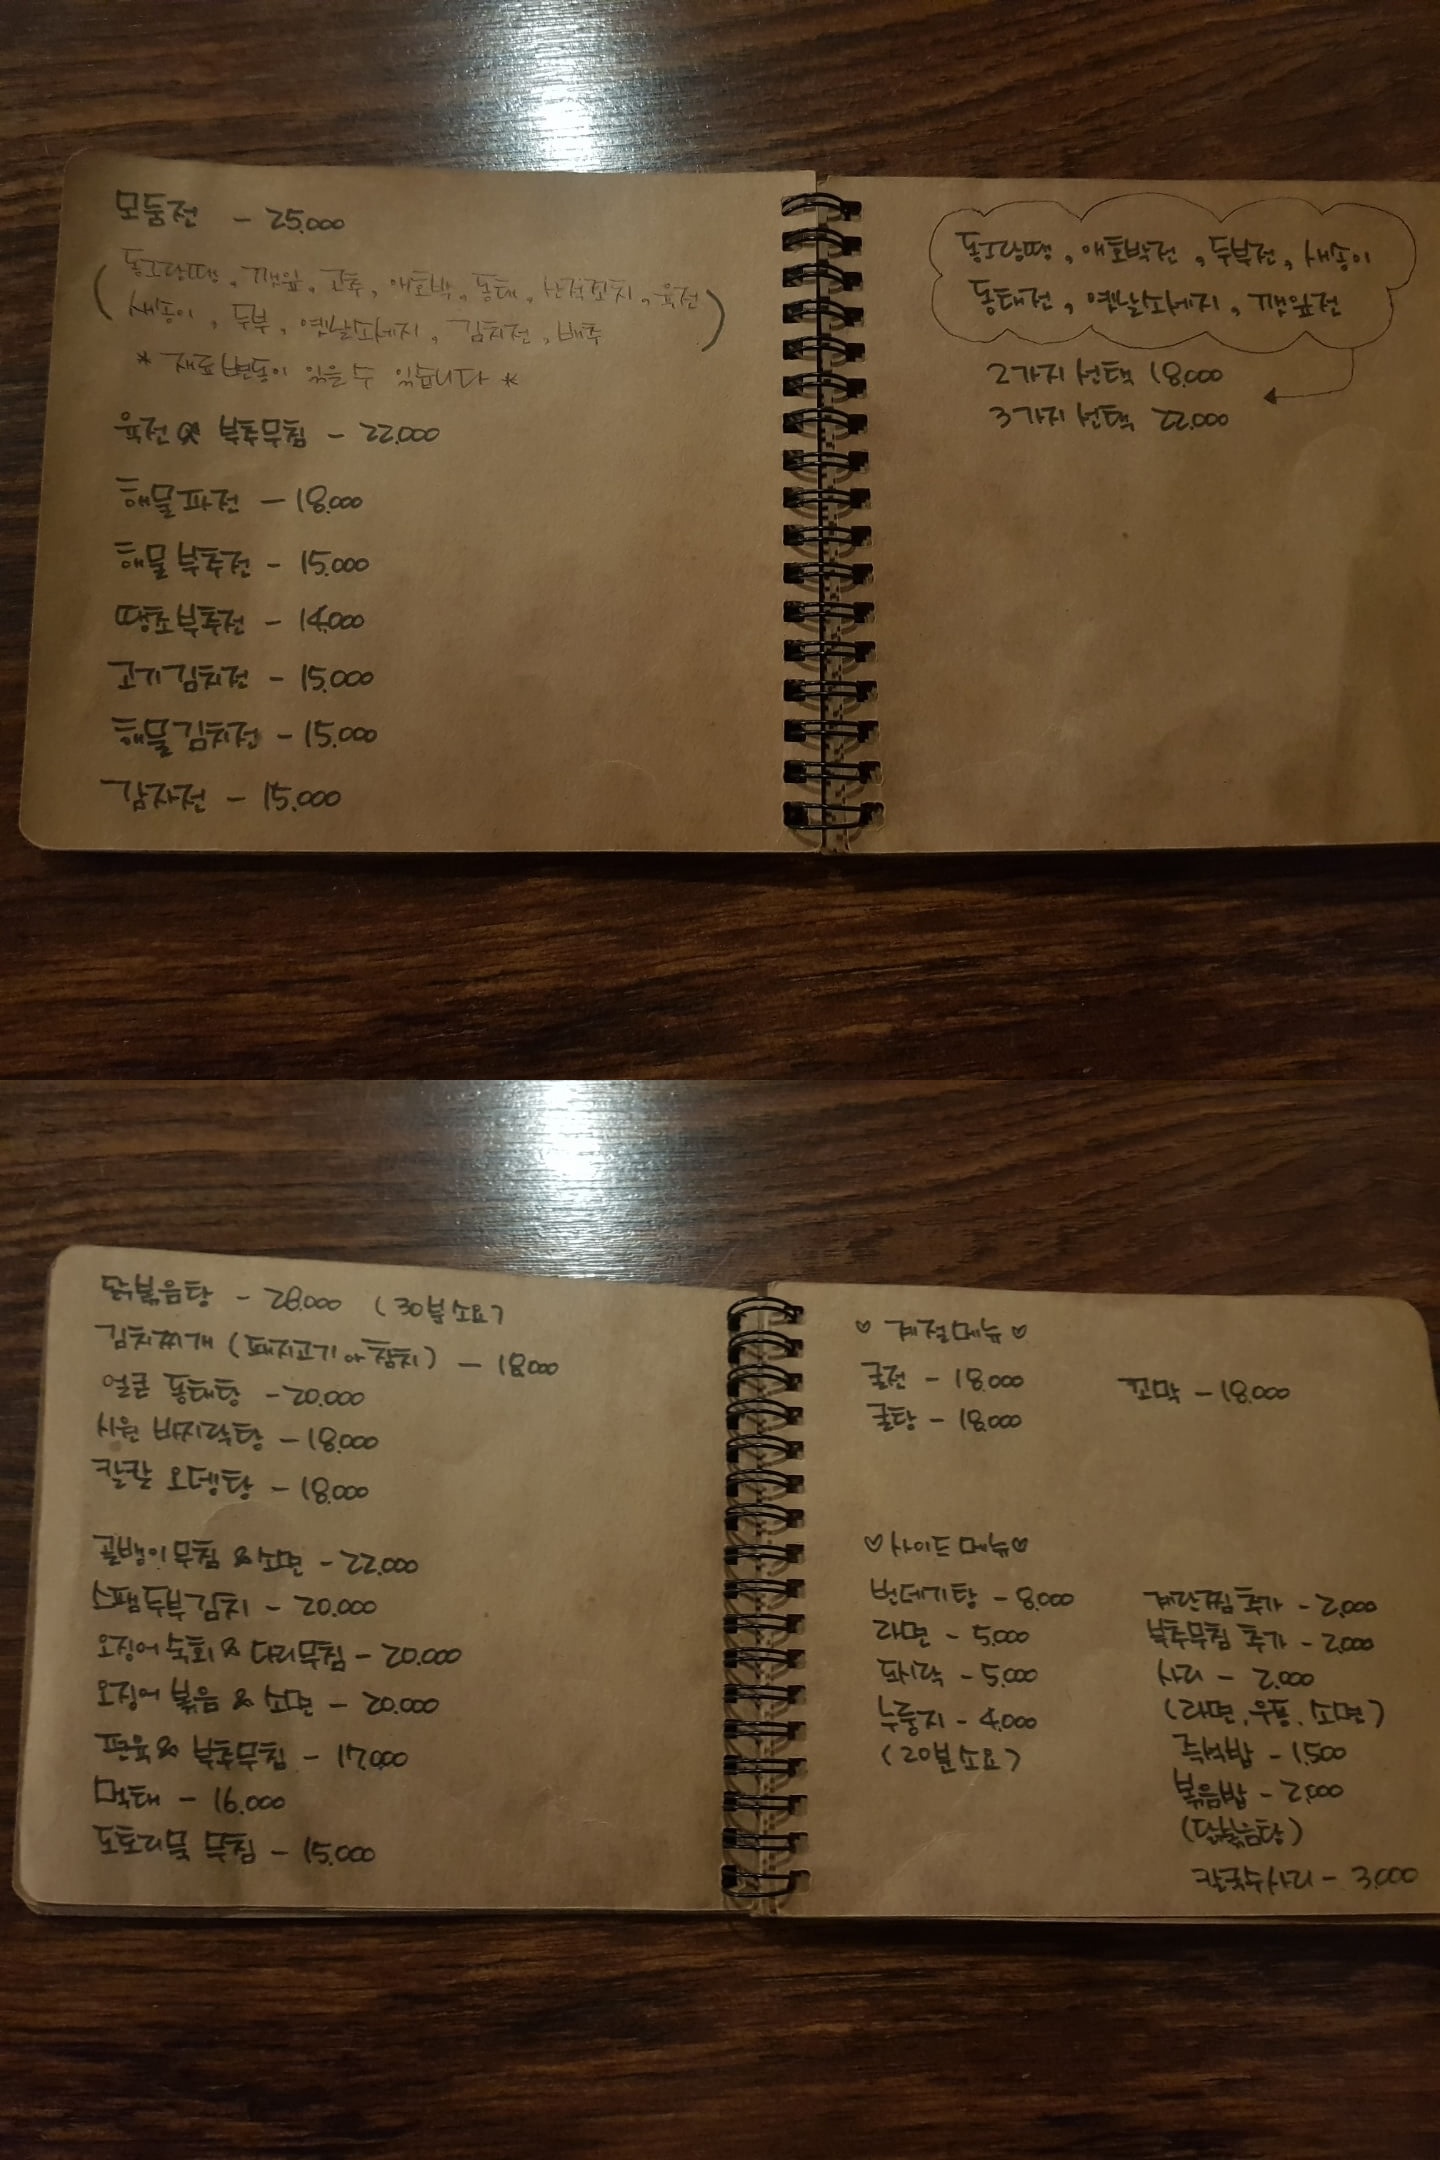 모둠전 - 25,000
(동그랑땡, 깻잎, 고추, 애호박, 동태, 산적꼬치, 육전
새송이, 두부, 옛날소세지, 김치전, 배추)
* 재료변동이 있을 수 있습니다 *
육전 & 부추무침 - 22,000
해물파전 - 18,000
해물부추전 - 15,000
땡초부추전 - 14,000
고기김치전 - 15,000
해물김치전 - 15,000
감자전 - 15,000
동그랑땡, 애호박전, 두부전, 새송이
동태전, 옛날소세지, 깻잎전
2가지 선택 18,000
3가지 선택 22,000
닭볶음탕 - 28,000 (30분 소요)
김치찌개 (돼지고기 or 참치) - 18,000
얼큰 동태탕 - 20,000
시원 바지락탕 - 18,000
칼칼 오뎅탕 - 18,000
골뱅이무침 & 소면 - 22,000
스팸두부김치 - 20,000
오징어 숙회 & 다리무침 - 20,000
오징어 볶음 & 소면 - 20,000
편육 & 부추무침 - 17,000
먹태 - 16,000
도토리묵 무침 - 15,000
♡ 계절메뉴 ♡
굴전 - 18,000
굴탕 - 18,000
꼬막 - 18,000
♡사이드 메뉴♡
번데기탕 - 8,000
라면 - 5,000
도시락 - 5,000
누룽지 - 4,000
(20분소요)
계란찜 추가 - 2,000
부추무침 추가 - 2,000
사리 - 2,000
(라면, 우동, 소면)
즉석밥 - 1,500
볶음밥 - 2,000
(닭볶음탕)
칼국수사리 - 3,000